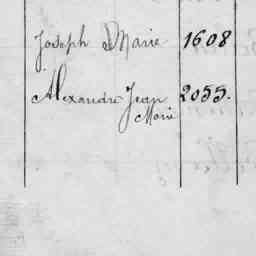 Joseph Marie 1608
Alexandre Jean 2055.
Marie